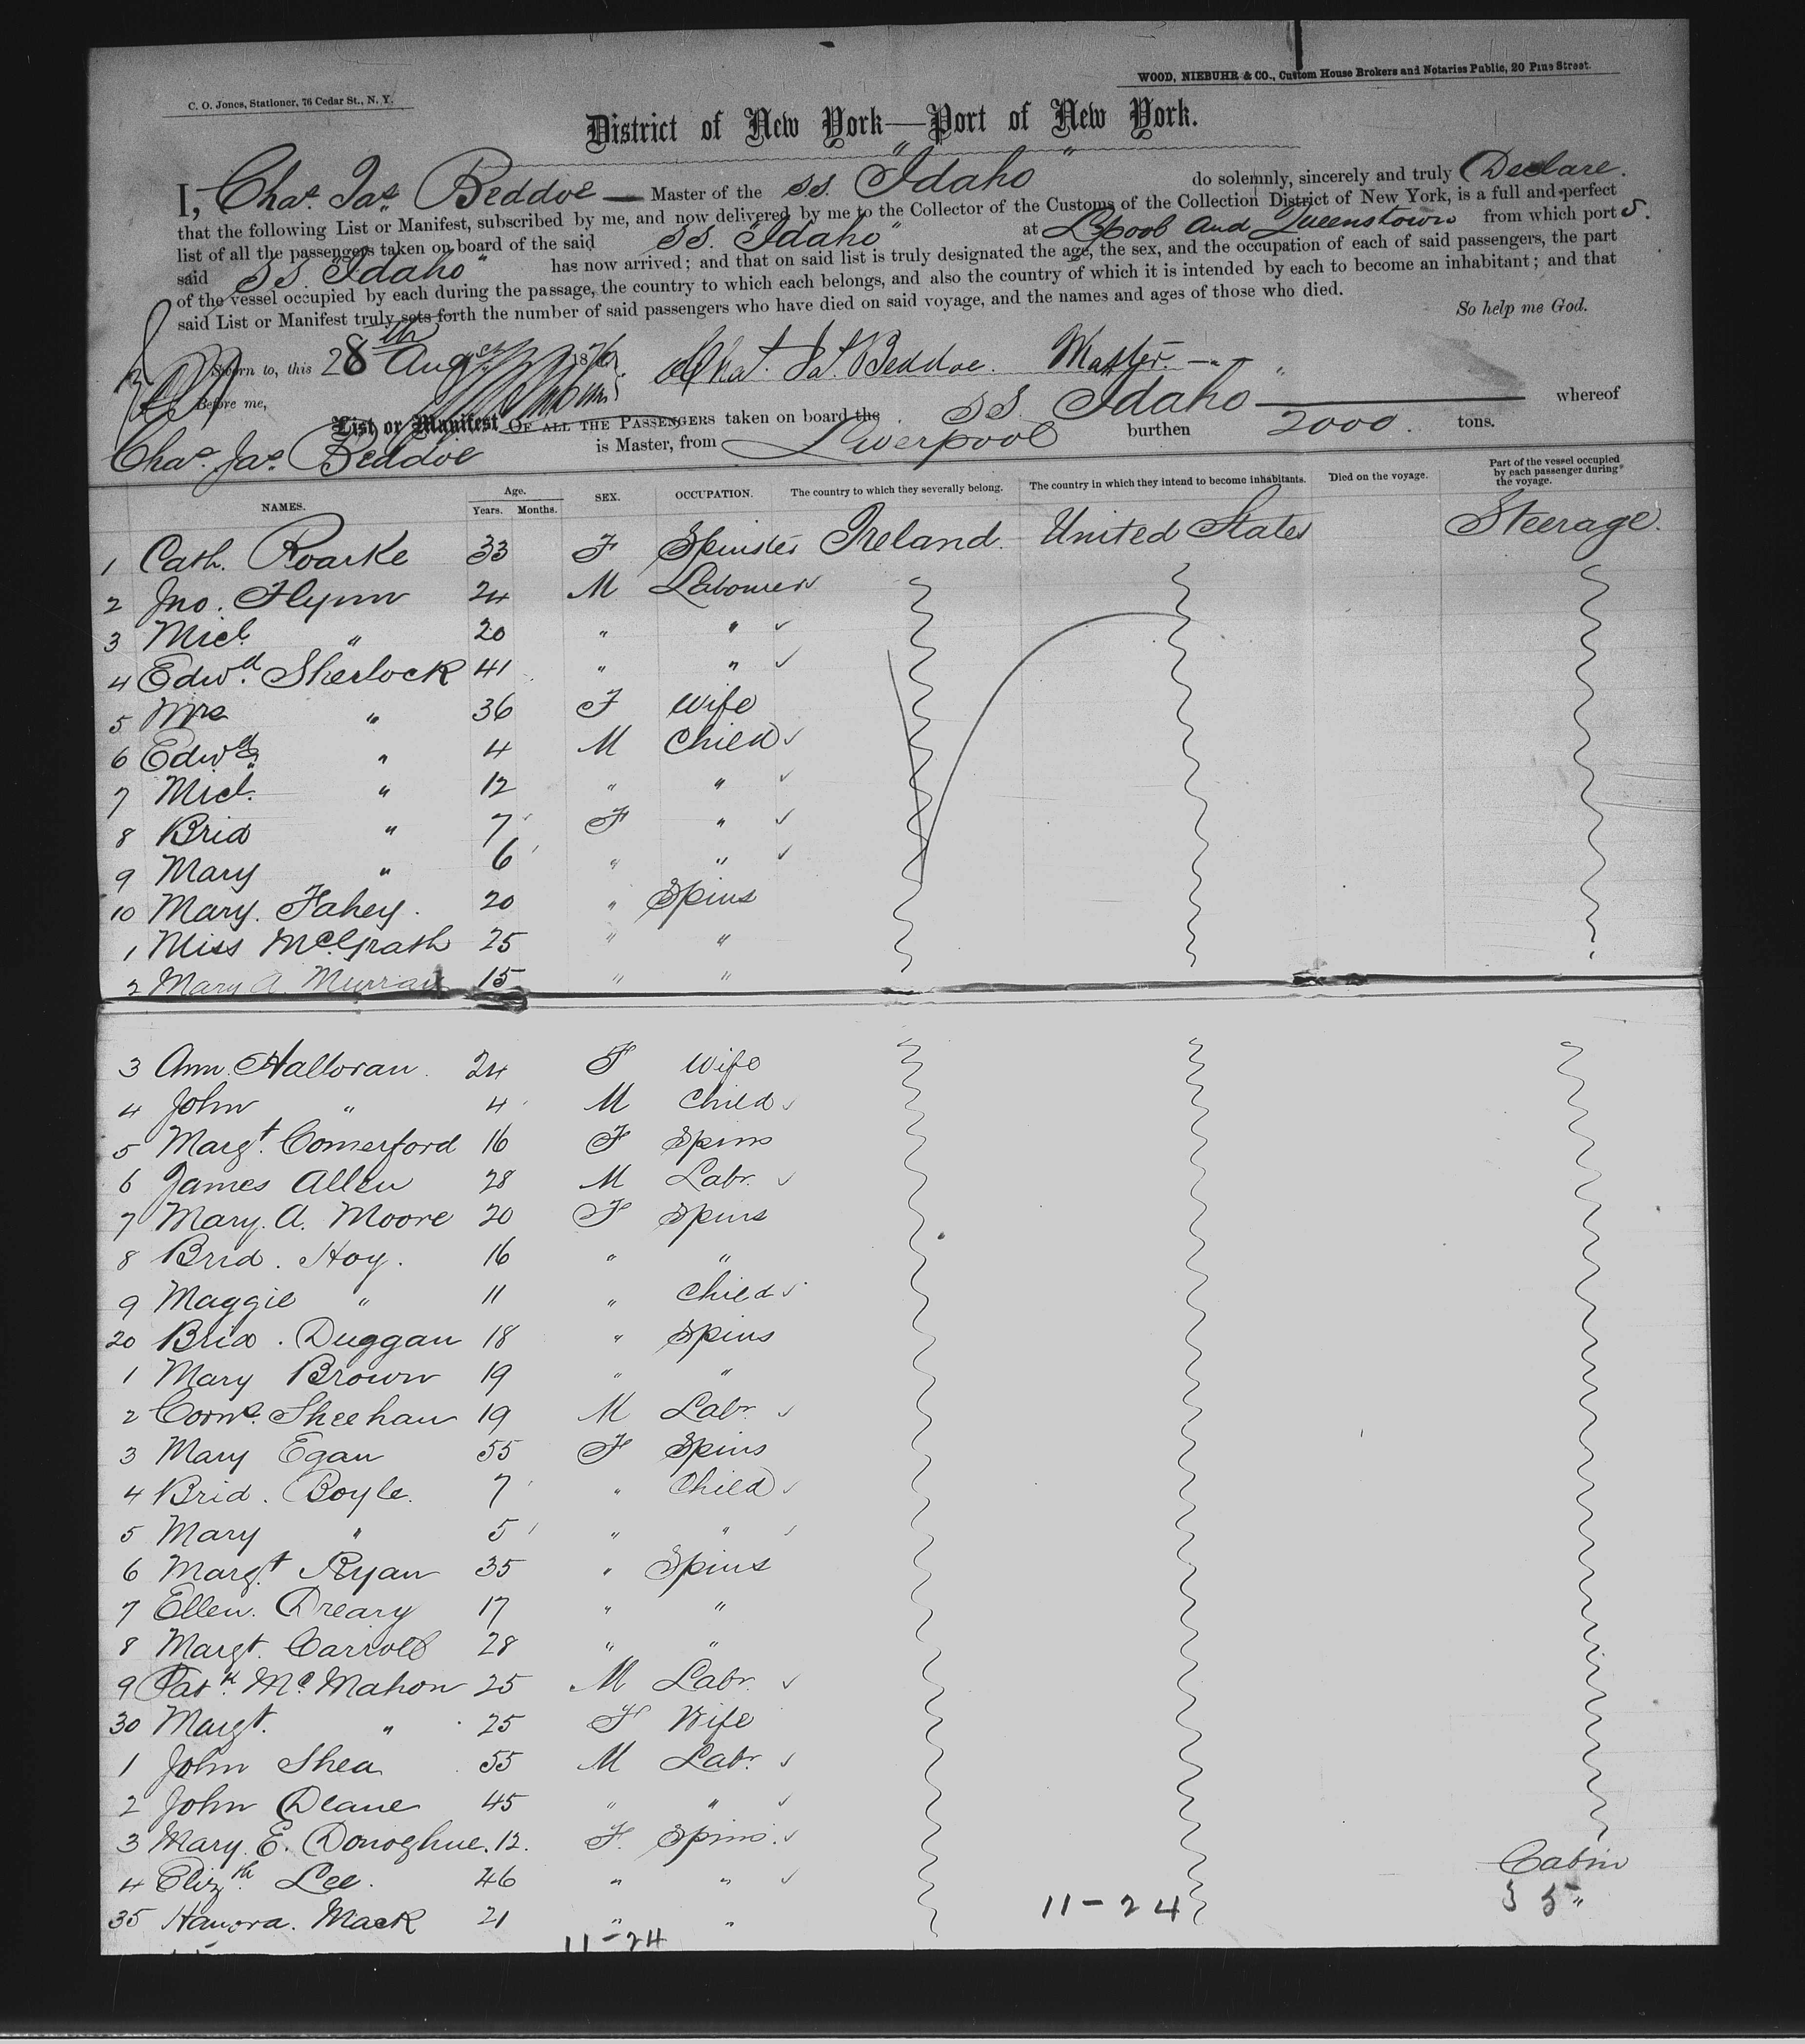 WOOD, NIEBUHR & CO., Custom House Brokers and Notaries Public, 20 Pine Street.
C. O. Jones, Stationer, 76 Cedar St., N. Y.
District of New York—Port of New York.
I, Chas. Jas. Beddoe — Master of the SS. "Idaho" do solemnly, sincerely and truly Declare.
that the following List or Manifest, subscribed by me, and now delivered by me to the Collector of the Customs of the Collection District of New York, is a full and perfect
list of all the passengers taken on board of the said SS. "Idaho" at L'pool and Queenstown from which port s.
said SS "Idaho" has now arrived; and that on said list is truly designated the age, the sex, and the occupation of each of said passengers, the part
of the vessel occupied by each during the passage, the country to which each belongs, and also the country of which it is intended by each to become an inhabitant; and that
said List or Manifest truly sets forth the number of said passengers who have died on said voyage, and the names and ages of those who died.
So help me God.
Sworn to, this 28th Augst 1876. Chas. Js. Beddoe. Master.
Before me,
List or Manifest OF ALL THE PASSENGERS taken on board the SS Idaho whereof
Chas. Jas. Beddoe is Master, from Liverpool burthen 2000. tons.
NAMES. Age. Years. Months. SEX. OCCUPATION. The country to which they severally belong. The country in which they intend to become inhabitants. Died on the voyage. Part of the vessel occupied by each passenger during the voyage.
1 Cath. Roarke 33 F Spinster Ireland United States Steerage.
2 Jno. Flynn 24 M Labourer
3 Micl. " 20 " "
4 Edwd. Sherlock 41 " "
5 Mrs " 36 F Wife
6 Edwd. " 4 M Child
7 Micl. " 12 " "
8 Brid " 7 F "
9 Mary " 6 " "
10 Mary. Fahey. 20 " Spins
1 Miss McGrath 25 " "
2 Mary A. Murray 15 " "
3 Ann Halloran 24 F Wife
4 John " 4 M Child
5 Margt. Comerford 16 F Spins
6 James Allen 28 M Labr.
7 Mary. A. Moore 20 F Spins
8 Brid. Hoy. 16 " "
9 Maggie " 11 " Child
20 Brid. Duggan 18 " Spins
1 Mary Brown 19 " "
2 Corns. Sheehan 19 M Labr.
3 Mary Egan 55 F Spins
4 Brid. Boyle. 7 " Child
5 Mary " 5 " "
6 Margt. Ryan 35 " Spins
7 Ellen. Dreary 17 " "
8 Margt. Carroll 28 " "
9 Patk. McMahon 25 M Labr.
30 Margt. " 25 F Wife
1 John Shea 55 M Labr.
2 John Deane 45 " "
3 Mary. E. Donoghue. 12. F. Spins.
4 Elizth Lee. 46 " " Cabin
35 Hanora. Mack 21 " " 11-24
11-24